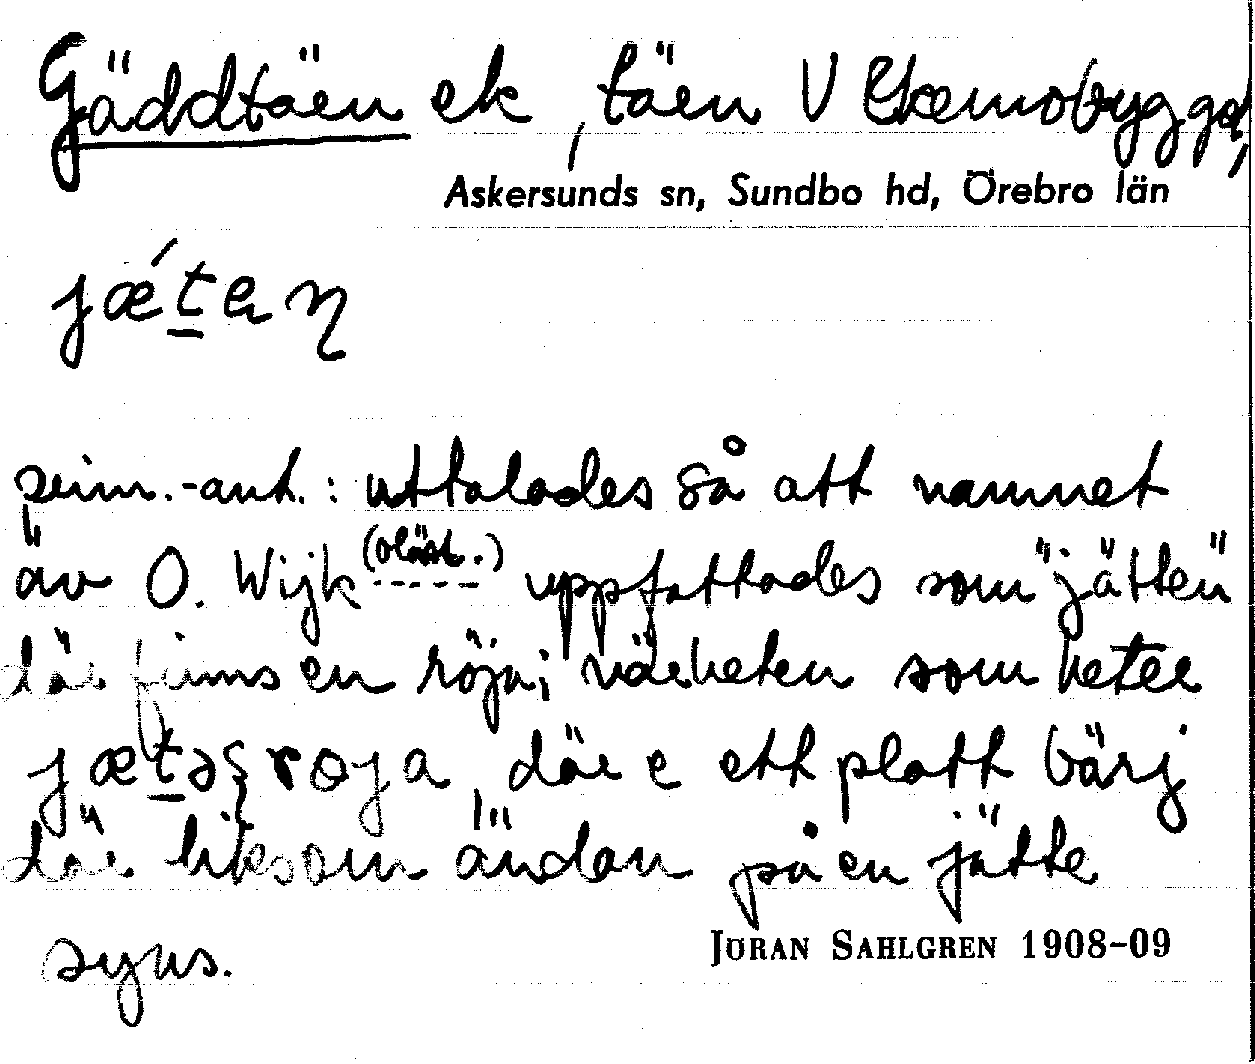 Gäddtäen ek, täen V
Askersunds sn, Sundbo hd, Örebro län
jǽtan
: uttalades så att namnet
äv O. Wijk (oläsl.) uppfattades som "jätten"
där finns en röja i närheten som heter
jætəsroja, där e ett platt bärj
där liksom ändan på en jätte
JÖRAN SAHLGREN 1908-09
syns.